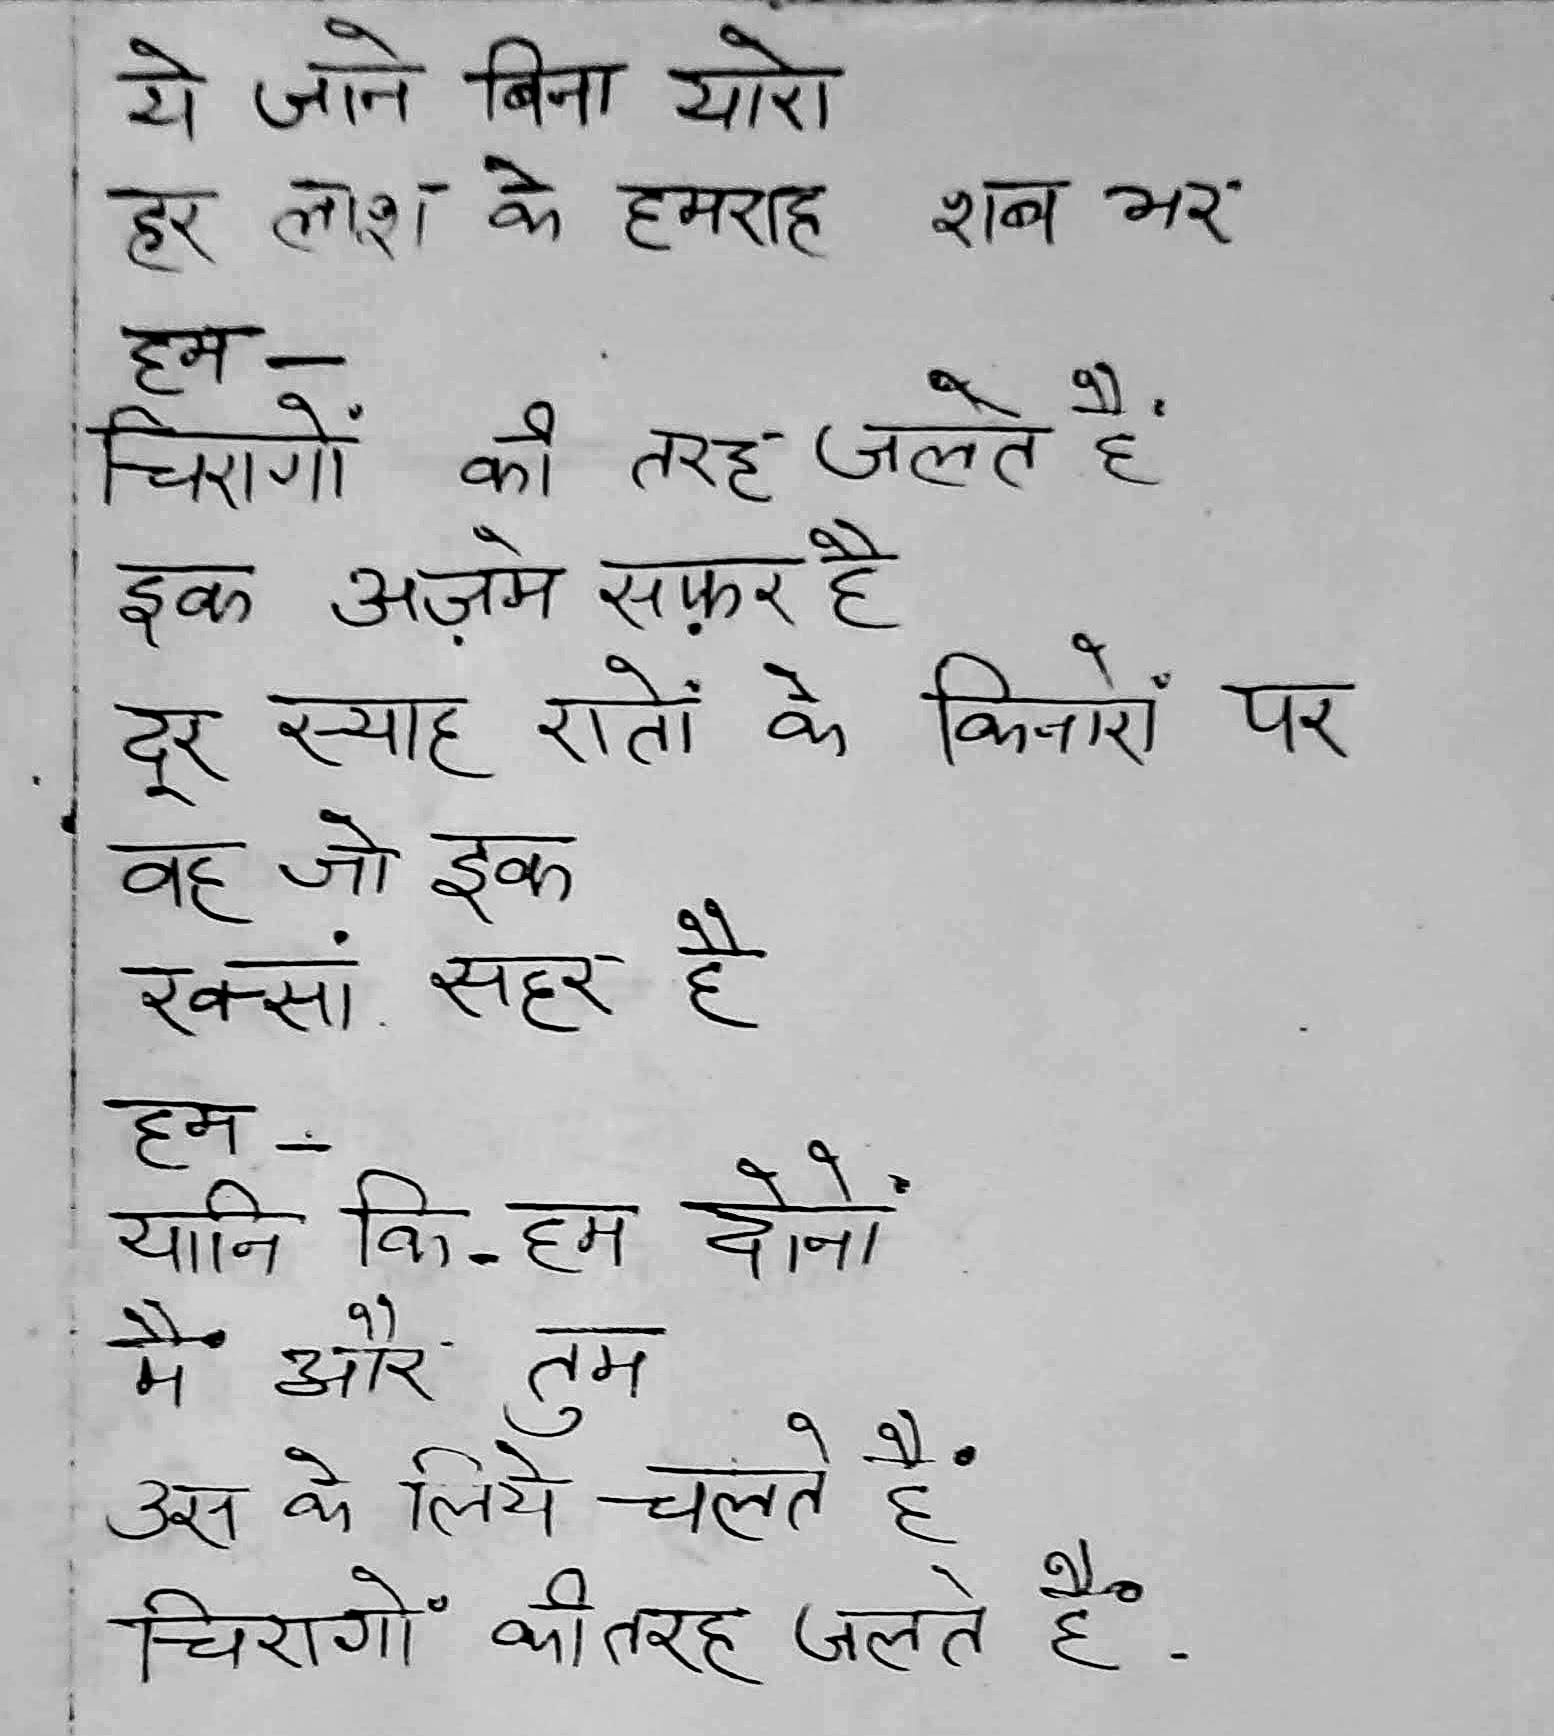 ये जाने बिना यारो
हर लाश के हमराह शब भर
हम -
चिरागों की तरह जलते हैं
इक अज़मे सफ़र है
दूर स्याह रातों के किनारों पर
वह जो इक
रक्सां सहर है
हम -
यानि कि - हम दोनों
मैं और तुम
उस के लिये चलते हैं
चिरागों की तरह जलते हैं .